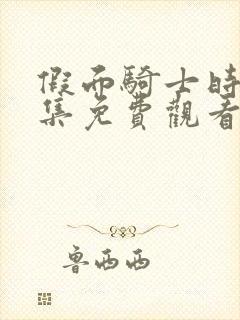 假面騎士時
集免費觀看
魯西西